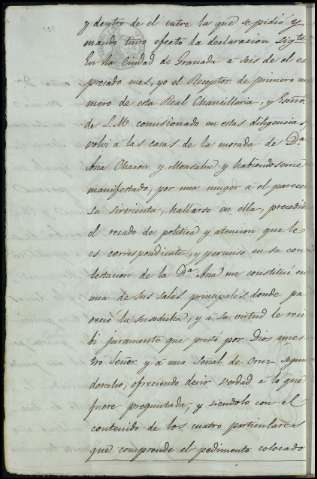 y dentro de el entre la que se pidio y
mando tuvo efecto la declaracion Sigte
En la Ciudad de Granada a seis de el es
presado mes, yo el Receptor de primero nu
mero de esta Real Chancilleria, y Escrno
de S. M. comisionado en estas diligencias
volvi a las casas de la morada de Da
Ana Chacon y Monsalud y habiendoseme
manifestado, por una muger a el parecer
la sirvienta, hallarse en ella, precedido
el recado de politica y atencion que le
es correspondiente, y permiso en su con
testacion de la Da Ana me constitui en
una de sus salas principales donde pa
recio la susodicha, y a su virtud le reci
bi juramento que prestó por Dios nues
tro Señor y a una Señal de Cruz segun
derecho, ofreciendo decir verdad a lo que
fuere preguntada; y siendolo con el
contenido de los cuatro particulares
que comprende el pedimento colocado